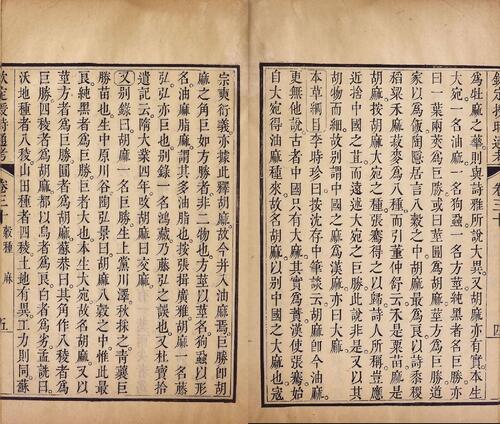 欽定授時通考 卷三十 四
為牡麻之華則與詩雅所說大異又胡麻亦有實本生
大宛一名油麻一名狗蝨一名方莖純黑者名巨勝亦
曰一葉兩莢為巨勝或曰莖圓為胡麻莖方為巨勝道
家以為飯陶隱居言八穀之中胡麻最為良以詩黍稷
稻粱禾麻菽麥為八種而引董仲舒云禾是粟苗麻是
胡麻按胡麻大宛之種張騫得之以歸詩人所稱豈應
近捨中國之苴而遠述大宛之巨勝此說非是以其
胡物而細故別謂中國之麻為漢麻亦曰大麻
本草綱目李時珍曰按沈存中筆談云胡麻即今油麻
更無他說古者中國只有大麻其實為蕡漢使張騫始
自大宛得油麻種來故名胡麻以別中國之大麻也寇
宗奭衍義亦據此釋胡麻故今并入油麻焉巨勝即胡
麻之角巨如方勝者非二物也方莖以莖名狗蝨以形
名油麻脂麻謂其多油脂也按張揖廣雅胡麻一名藤
弘弘亦巨也別錄一名鴻藏乃藤弘之誤也又杜寶拾
遺記云隋大業四年改胡麻曰交麻
又別錄曰胡麻一名巨勝生上黨川澤秋採之青蘘巨
勝苗也生中原川谷陶弘景曰胡麻八穀之中惟此最
良純黑者為巨勝巨者大也本生大宛故名胡麻又以
莖方者為巨勝圓者為胡麻蘇恭曰其角作八稜者為
巨勝四稜者為胡麻都以烏者為良白者為劣孟詵曰
沃地種者八稜山田種者四稜土地有異工力則同蘇
欽定授時通考 卷三十 穀種 麻 五